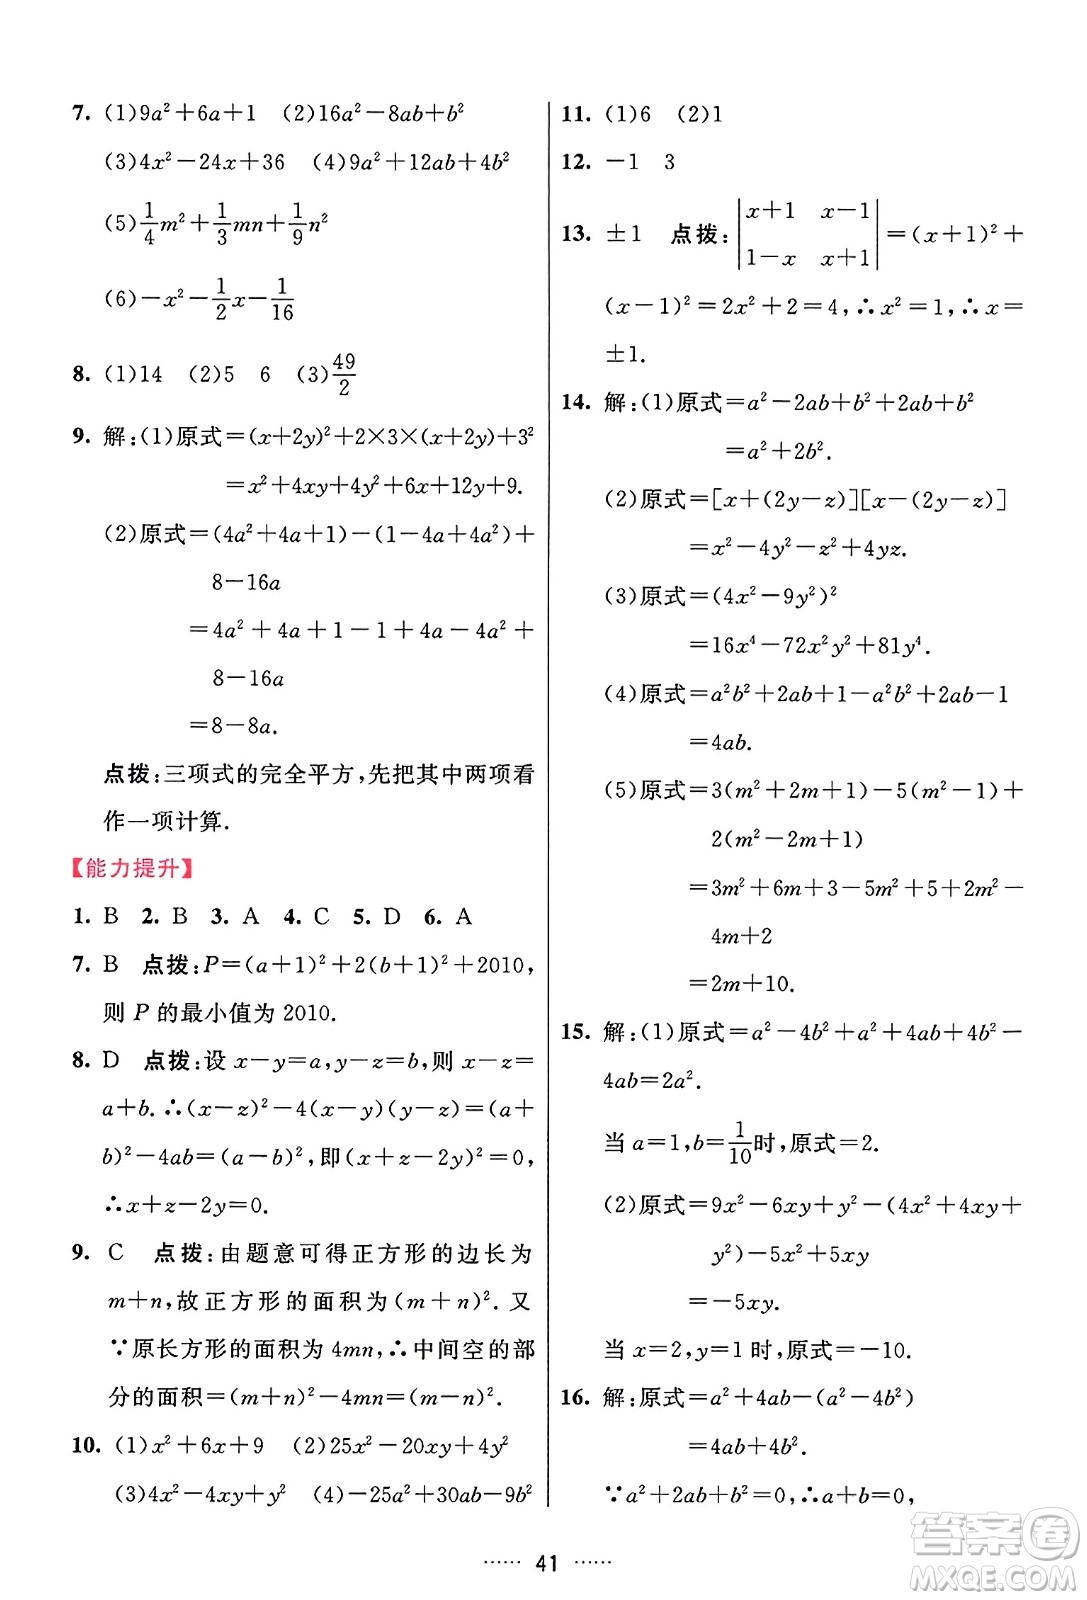 7. (1)9a²+6a+1 (2)16a²-8ab+b²
(3)4x²-24x+36 (4)9a²+12ab+4b²
(5)1/4m²+1/3mn+1/9n²
(6)-x²-1/2x-1/16
8. (1)14 (2)5 6 (3)49/2
9. 解:(1)原式=(x+2y)²+2×3×(x+2y)+3²
=x²+4xy+4y²+6x+12y+9.
(2)原式=(4a²+4a+1)-(1-4a+4a²)+
8-16a
=4a²+4a+1-1+4a-4a²+
8-16a
=8-8a.
点拨:三项式的完全平方,先把其中两项看
作一项计算.
【能力提升】
1. B 2. B 3. A 4. C 5. D 6. A
7. B 点拨:P=(a+1)²+2(b+1)²+2010,
则 P 的最小值为 2010.
8. D 点拨:设 x-y=a,y-z=b,则 x-z=
a+b.∴(x-z)²-4(x-y)(y-z)=(a+
b)²-4ab=(a-b)²,即(x+z-2y)²=0,
∴x+z-2y=0.
9. C 点拨:由题意可得正方形的边长为
m+n,故正方形的面积为(m+n)².又
∵原长方形的面积为4mn,∴中间空的部
分的面积=(m+n)²-4mn=(m-n)².
10. (1)x²+6x+9 (2)25x²-20xy+4y²
(3)4x²-4xy+y² (4)-25a²+30ab-9b²
11. (1)6 (2)1
12. -1 3
13. ±1 点拨:|x+1 x-1
1-x x+1|=(x+1)²+
(x-1)²=2x²+2=4,∴x²=1,∴x=
±1.
14. 解:(1)原式=a²-2ab+b²+2ab+b²
=a²+2b².
(2)原式=[x+(2y-z)][x-(2y-z)]
=x²-4y²-z²+4yz.
(3)原式=(4x²-9y²)²
=16x⁴-72x²y²+81y⁴.
(4)原式=a²b²+2ab+1-a²b²+2ab-1
=4ab.
(5)原式=3(m²+2m+1)-5(m²-1)+
2(m²-2m+1)
=3m²+6m+3-5m²+5+2m²-
4m+2
=2m+10.
15. 解:(1)原式=a²-4b²+a²+4ab+4b²-
4ab=2a².
当 a=1,b=1/10时,原式=2.
(2)原式=9x²-6xy+y²-(4x²+4xy+
y²)-5x²+5xy
=-5xy.
当 x=2,y=1 时,原式=-10.
16. 解:原式=a²+4ab-(a²-4b²)
=4ab+4b².
∵a²+2ab+b²=0,∴a+b=0,
······ 41 ······
答案卷
MXQE.COM